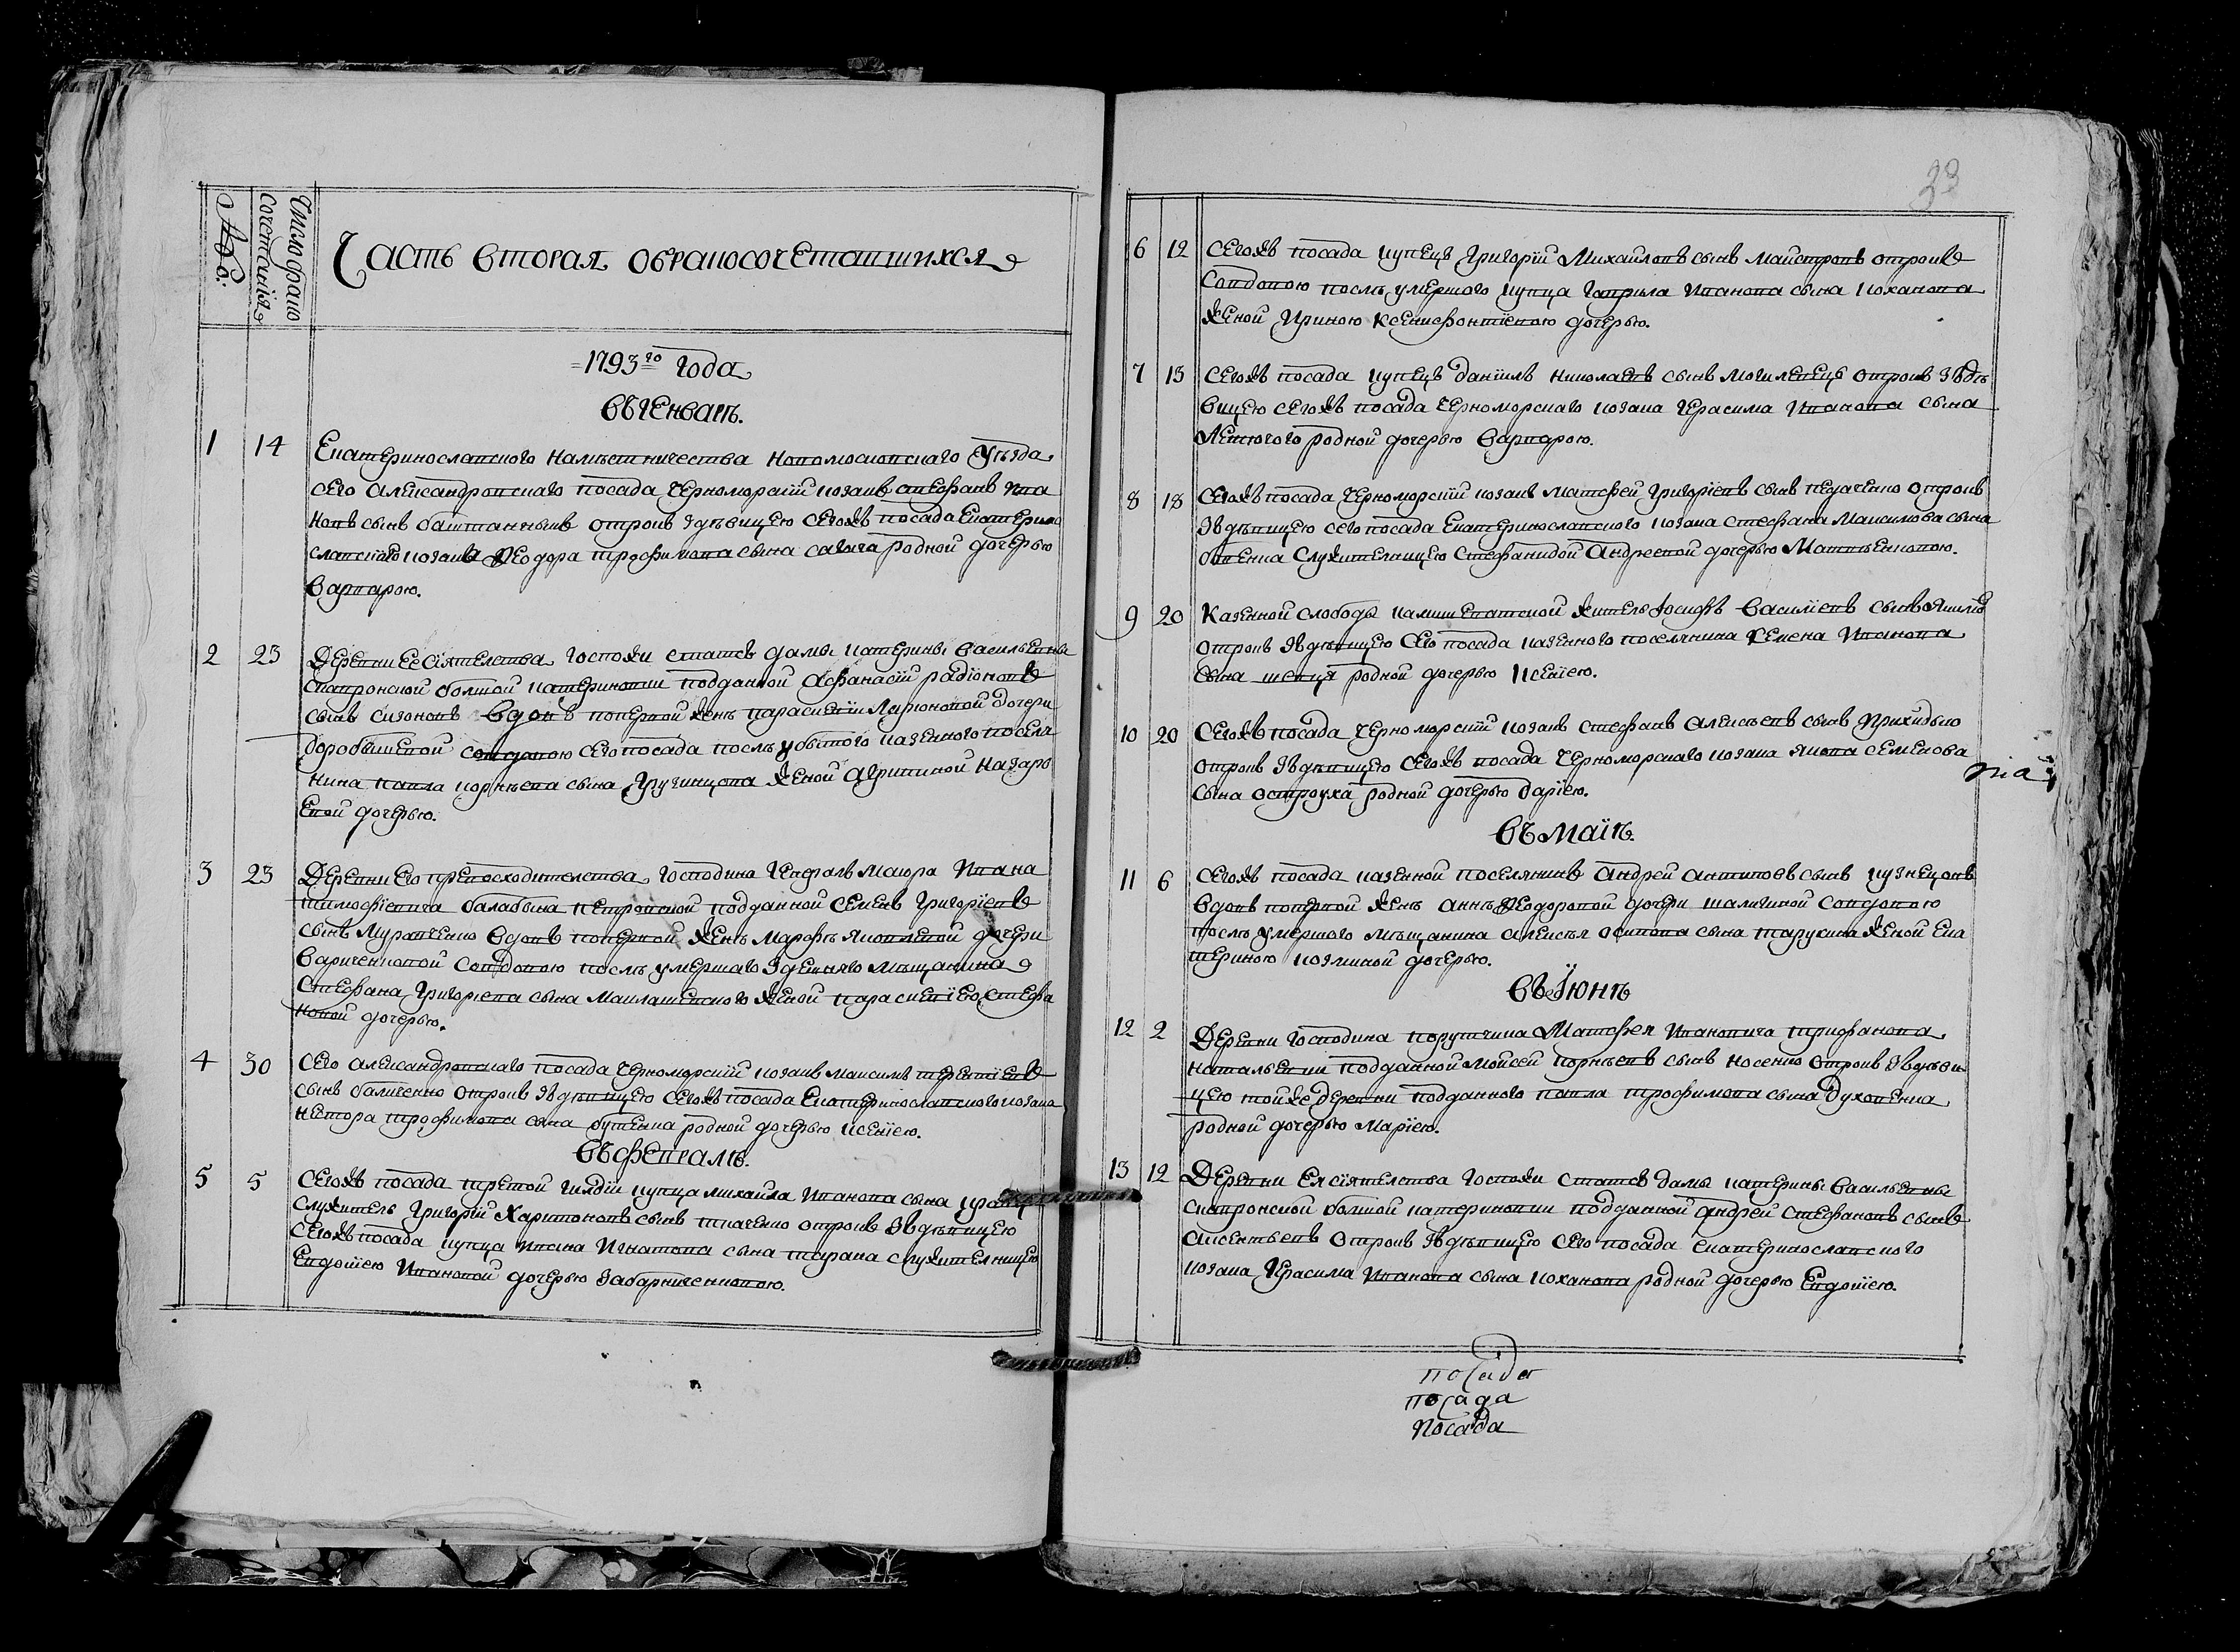 №:
Число брако
сочетания
Часть вторая о бракосочетавшихся
1793го года
въ генваре.
1 14 Екатеринославского наместничества Новомосковскаго уезда
сего александровскаго посада черноморскій козакъ стефанъ ива
новъ сынъ баштанныкъ отрокъ здевицею сегожъ посада Екатерино
славского козака Феодора трофимова сына родной дочерью
варварою.
2 23 Деревни Ее сіятелства госпожи статсъ дамы катерины василевны
скавронской болшой катериновки подданной Афанасій радіоновъ
сынъ сизоновъ вдовъ по первой жене парасковіи Ларионовой дочери
совдовою сего посада после убытого казенного посел
нина павла корнеева сына женой агрипиной назаро
вной дочерью.
3 23 Деревни Его превосходителства господина генералъ маіора ивана
тимофіевича балабына петровской подданной семенъ григоріевъ
сынъ Муравченко вдовъ по первой жене Марфе яковлевой дочери
совдовою после умершаго здешняго мещанина
стефана григориева сына женой парасковіею стефа
новой дочерью.
4 30 Сего александровскаго посада черноморскій козакъ максимъ терентіевъ
сынъ отрокъ здевицею сегожъ посада Екатеринославского козака
трофимова сына родной дочерью ксеніею.
въ феврале.
5 5 сегожъ посада третой гилдіи купца михайла иванова сына
служитель григорій Харитоновъ сынъ ткаченко отрокъ здевицею
сегожъ посада купца ивана игнатова сына тарана служителницею
Евдокіею ивановой дочерью
33
6 12 сегожъ посада купецъ григорій михайловъ сынъ майстровъ отрокъ
совдовою после умершого купца гаврила иванова сына коханова
женой ириною ксенофонтіевою дочерью.
7 13 сегожъ посада купецъ даниилъ николаевъ сынъ могилевецъ отрокъ зъде
вицею сегожъ посада черноморскаго козака герасима иванова сына
родной дочерью варварою.
8 18 сегожъ посада черноморскій козакъ матфей григоріевъ сынъ отрокъ
зъдевицею сего посада Екатеринославского козака стефана Максимова сына
служителницею стефанидой андреевой дочерью Матвеенковою.
9 20 Казенной слободы житель іосифъ василіевъ сынъ
отрокъ зъдевицею сего посада казенного поселянина семена иванова
сына шевця родной дочерью ксеніею.
10 20 сегожъ посада черноморскій козакъ стефанъ алексеевъ сынъ
отрокъ здевицею сегожъ посада черноморскаго козака якова семенова
сына остроуха родной дочерью даріею.
въ маіе.
11 6 сегожъ посада казенной поселянинъ андрей антиповъ сынъ кузнецовъ
вдовъ по первой жене анне Феодоровой дочери шаличиной совдовою
после умершого мещанина алексея осипова сына тарукина женой Ека
териною козминой дочерью.
въ Іюне
12 2 Деревни господина порутчика Матфея ивановича трифанова
наталевки подданной моисей корнеевъ сынъ носенко отрокъ зъдеви
цею тойже деревни подданного павла трофимова сына
родной дочерью маріею.
13 12 Деревни Ея сіятелства госпожи статсъ дамы катерины василевны
скавронской болшой катериновки подданной андрей стефановъ сынъ
аксентьевъ отрокъ зъдевицею сего посада екатеринославского
козака герасима иванова сына коханова родной дочерью Евдокіею.
посада
посада
посада